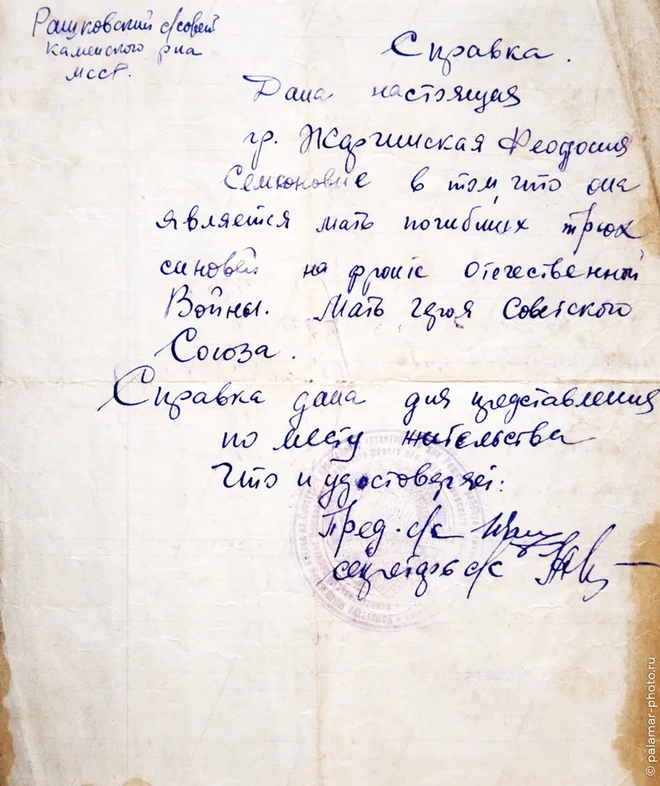 Рашковский с/совет
Каменского р-на
МССР.
Справка.
Дана настоящая
гр. Жарчинская Феодосия
Семионовне в том что она
является мать погибших трюх
сановей на фронте Отечественной
Войны. Мать героя Советского
Союза.
Справка дана для представления
по месту жительства
Что и удостоверяет:
Пред. с/с
секретарь с/с
© palamar-photo.ru